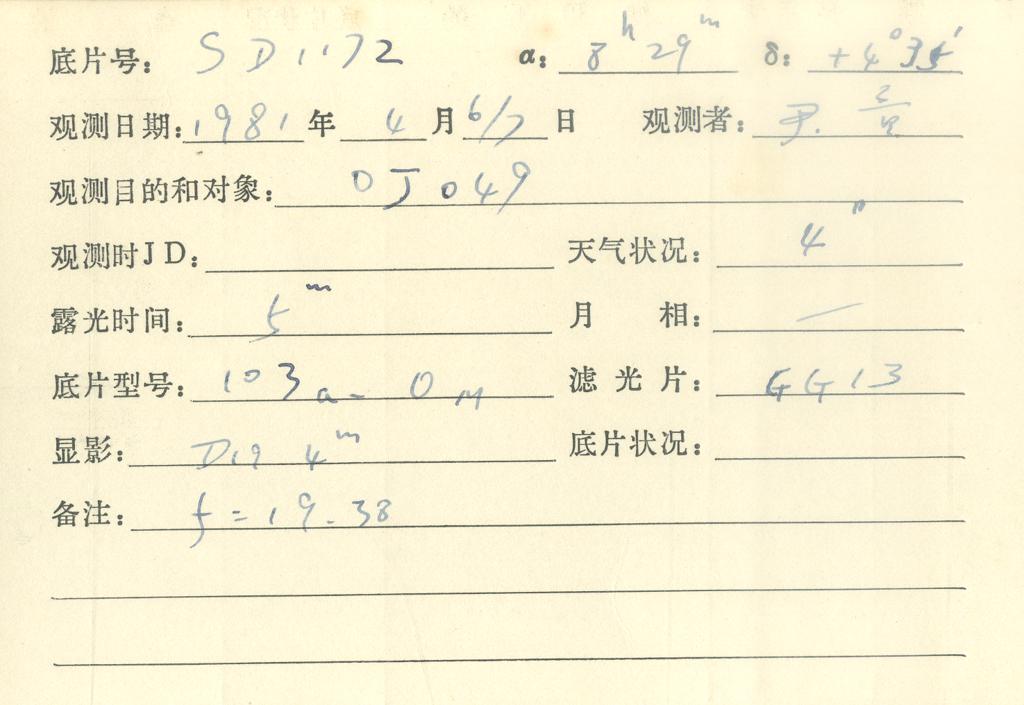 底片号: SD1172 α: 8h29m δ: +4°35′
观测日期: 1981 年 4 月 6/7 日 观测者: 尹
观测目的和对象: OJ049
观测时JD: 天气状况: 4″
露光时间: 5m 月 相: —
底片型号: 103a-O 滤光片: GG13
显影: D19 4m 底片状况:
备注: f=19.38